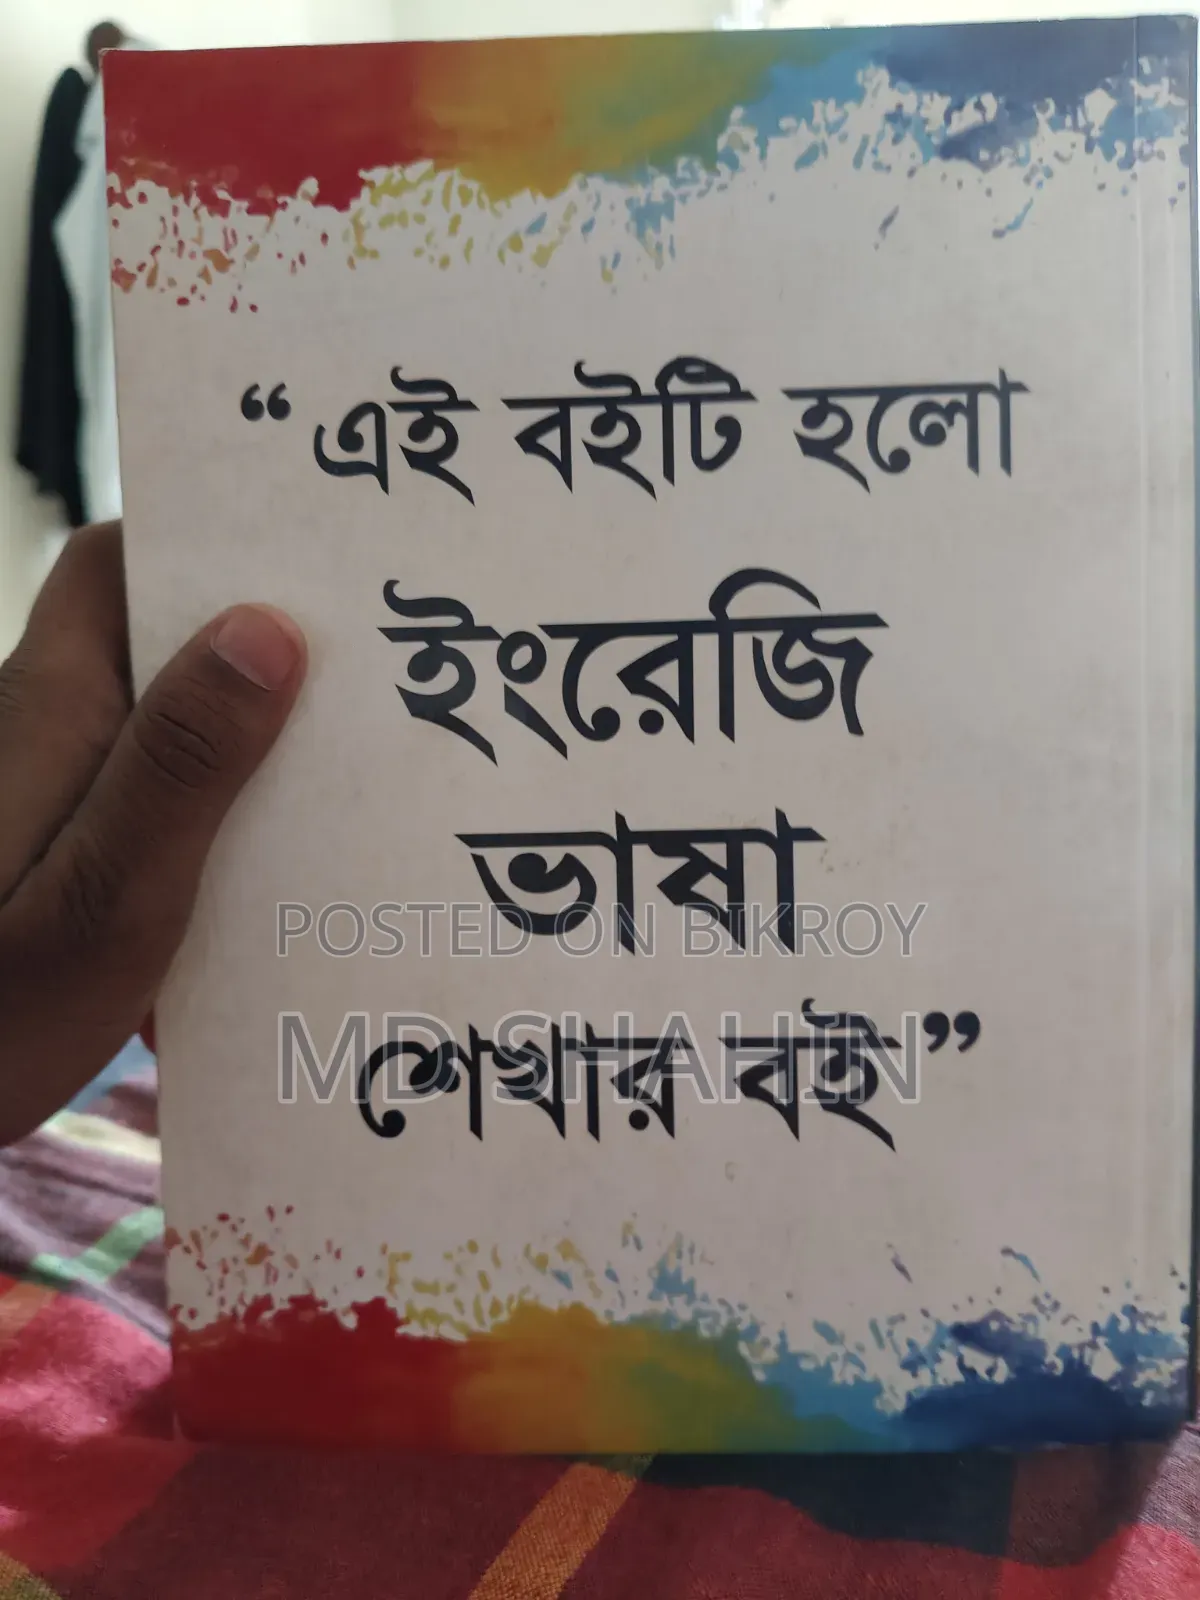 “এই বইটি হলো
ইংরেজি
ভাষা
POSTED ON BIKROY
শেখার বই”
MD SHAHIN